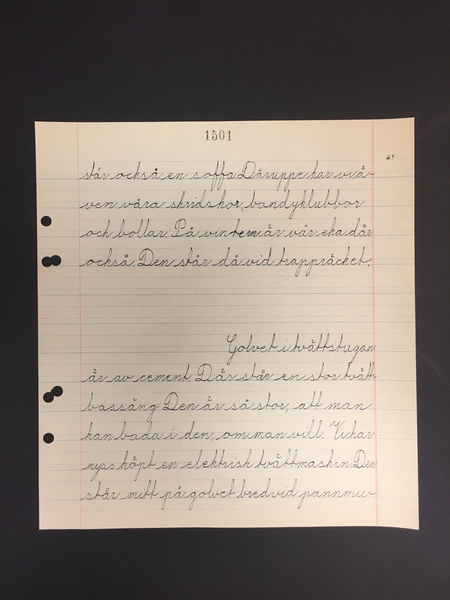 1501
67
står också en soffa Däruppe har vi ä-
ven våra skridskor, bandyklubbor
och bollar. På vintern är vår eka där
också. Den står då vid trappräcket.
Golvet i tvättstugan
är av cement. Där står en stor tvätt-
bassäng. Den är så stor, att man
kan bada i den, om man vill. Vi har
nyss köpt en elektrisk tvättmaskin. Den
står mitt på golvet bredvid pannmu-